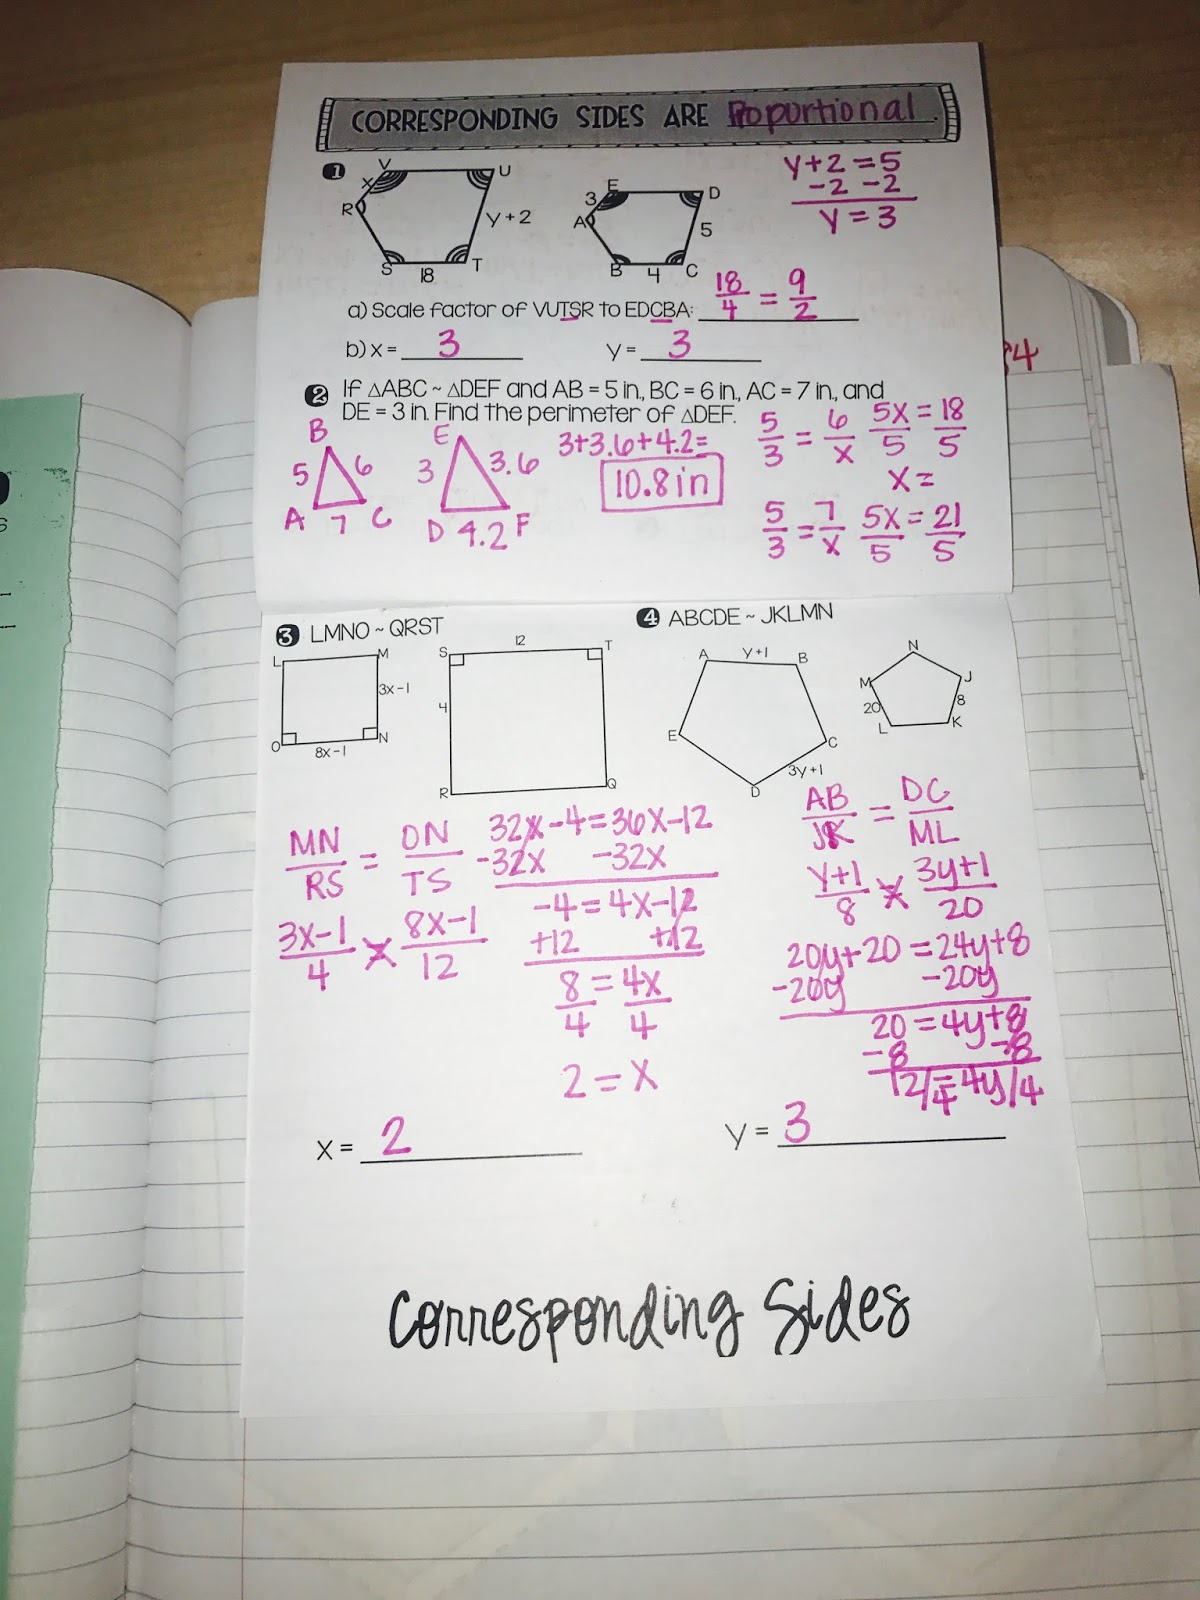 CORRESPONDING SIDES ARE Proportional.
1
V
U
X
R
Y + 2
S
18
T
E
D
3
A
5
B
4
C
Y+2 = 5
-2 -2
Y = 3
a) Scale factor of VUTSR to EDCBA: 18/4 = 9/2
b) x = 3 y = 3
2 If △ABC ~ △DEF and AB = 5 in, BC = 6 in, AC = 7 in, and
DE = 3 in. Find the perimeter of △DEF.
B
5
6
A
7
C
E
3
3.6
D
4.2
F
3+3.6+4.2=
10.8in
5/3 = 6/x 5x/5 = 18/5
x =
5/3 = 7/x 5x/5 = 21/5
34
3 LMNO ~ QRST
L
M
3x-1
O
N
8x-1
S
12
T
4
R
Q
MN/RS = ON/TS
3x-1/4 = 8x-1/12
32x-4=36x-12
-32x -32x
-4=4x-12
+12 +12
8/4 = 4x/4
2 = x
x = 2
4 ABCDE ~ JKLMN
A
Y+1
B
E
C
3y+1
D
N
M
J
20
8
L
K
AB/JK = DC/ML
y+1/8 = 3y+1/20
20y+20 = 24y+8
-20y -20y
20 = 4y+8
-8 -8
12/4 = 4y/4
y = 3
Corresponding Sides